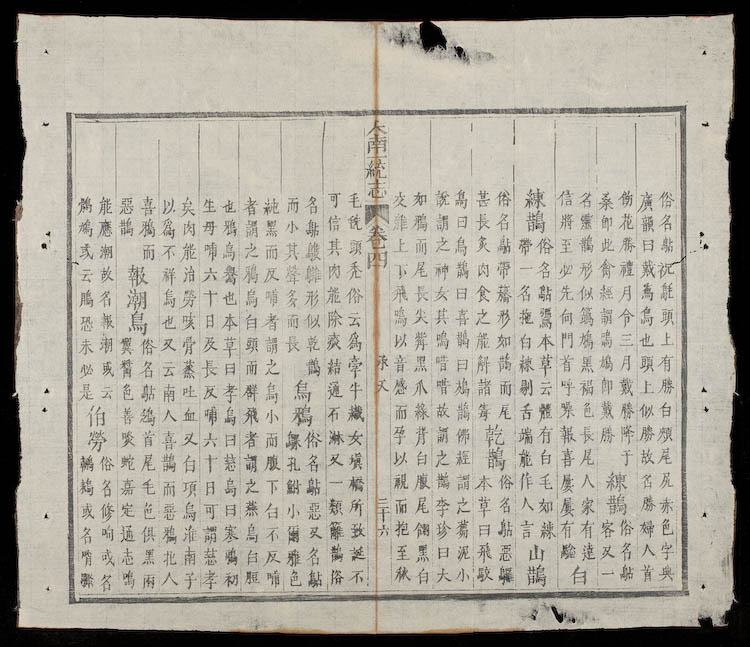 俗名鮎沉頭上有勝白頰尾尻赤色字典
廣韻曰戴鵀鳥也頭上似勝故名勝婦人首
飾花勝禮月令三月戴勝降于 練鵲俗名鮎
桑即此禽經謂鳲鳩即戴勝 客又一
名靈鵲形似鳩黑褐色長尾人家有遠
信將至必先向門首呼噪報喜屢屢有驗 白
練鵲俗名鮎本草云體有白毛如練 山鵲
帶一名拖白練剔舌端能作人言
俗名鮎帶形如鵲而尾 乾鵲俗名鮎惡
甚長炙肉食之能解諸毒 本草曰飛駁
烏曰烏鵲曰喜鵲曰鳩鵲佛經謂之蒭泥小
說謂之神女其鳴唶唶故謂之鵲李珍曰大
如鴉而尾長尖觜黑爪綠背白腹尾翮黑白
交雜上下飛鳴以音感而孕以視而抱至秋
大南一統志 卷四 承天 三十六
毛毨頭禿俗云為牽牛織女填橋所致誕不
可信其肉能除痰結通石淋又一類雛鵲俗
名鮎形似乾鵲 烏鴉俗名鮎惡又名鮎
而小其聲多而長 孔鮒小爾雅色
純黑而反哺者謂之烏小而腹下白不反哺
者謂之鴉烏白頭而群飛者謂之燕烏白脰
也鴉烏鸒也本草曰孝烏曰慈烏曰寒鴉初
生母哺六十日及長反哺六十日可謂慈孝
矣肉能治勞咳骨蒸吐血又白項烏淮南子
以為不祥烏也又云南人喜鵲而惡鴉北人
喜鴉而 報潮鳥俗名鮎鴻首尾毛色俱黑兩
惡鵲 翼醬色善啖蛇嘉定通志鳴
能應潮故名報潮或云 伯勞俗名修响或名
鷓鴣或云鵩恐未必是 鵴或名